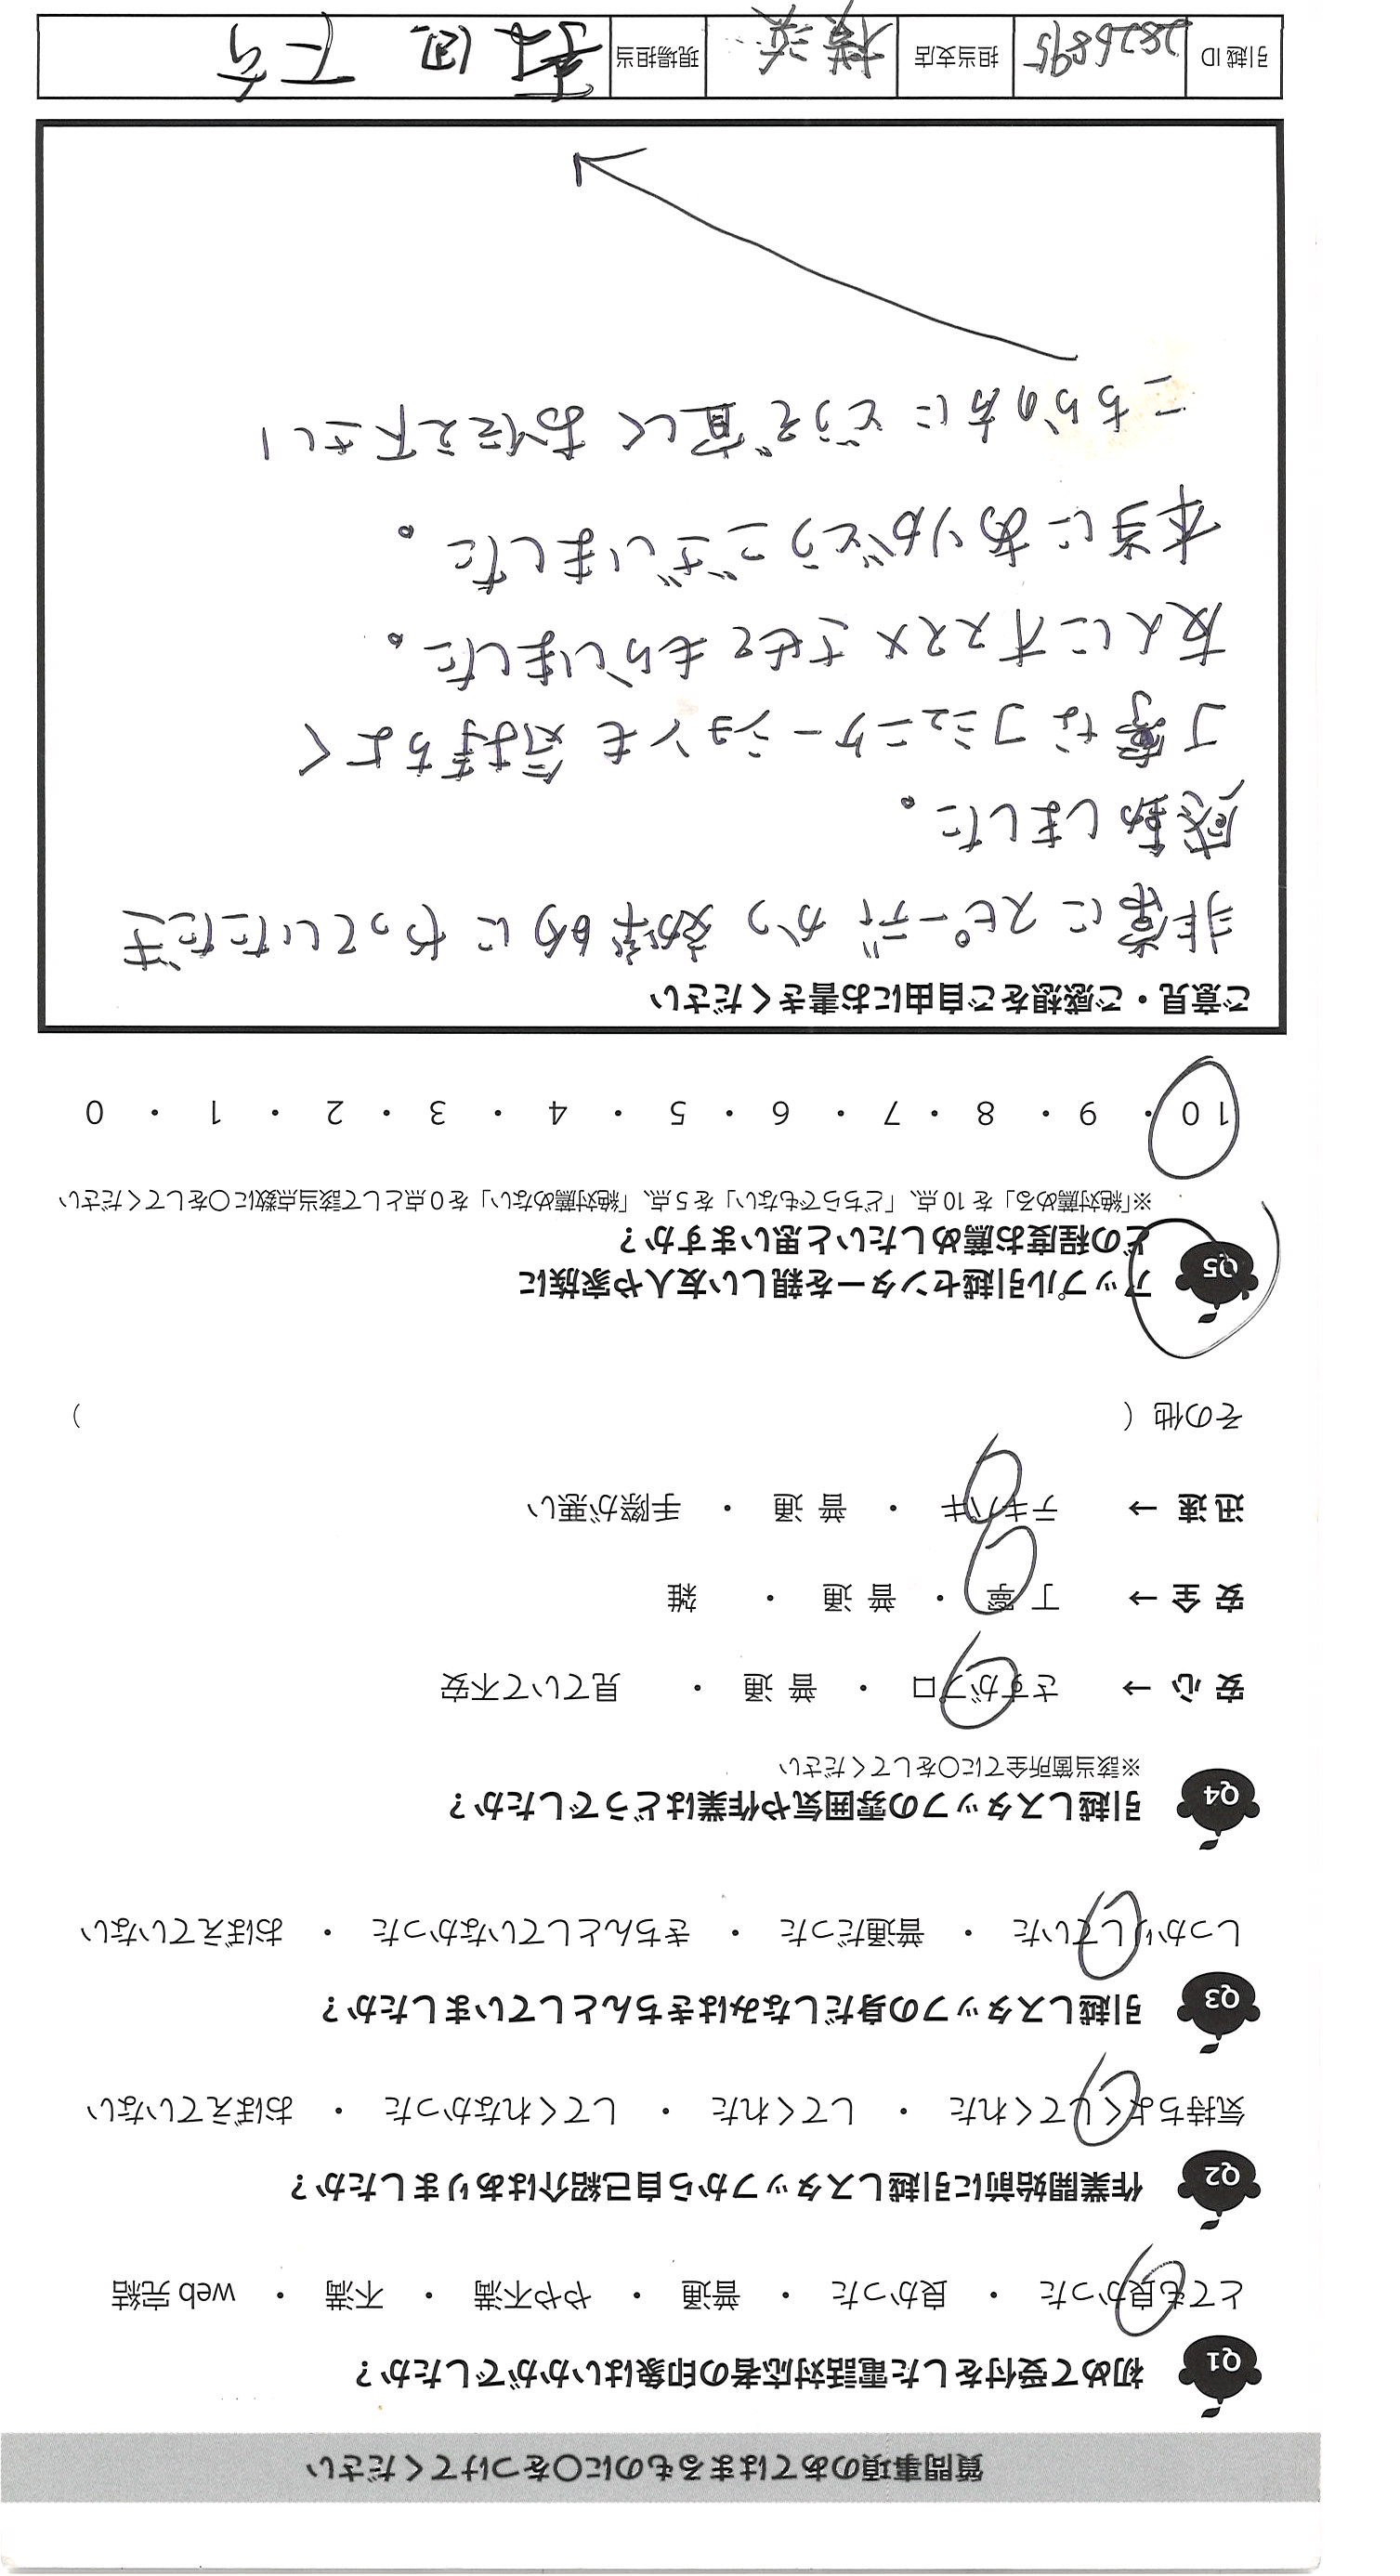 質問事項のあてはまるものに〇をつけてください
Q1 初めて受付をした電話対応者の印象はいかがでしたか？
とても良かった ・ 良かった ・ 普通 ・ やや不満 ・ 不満 ・ web 完結
Q2 作業開始前に引越しスタッフから自己紹介はありましたか？
気持ちよくしてくれた ・ してくれた ・ してくれなかった ・ おぼえていない
Q3 引越しスタッフの身だしなみはきちんとしていましたか？
しっかりしていた ・ 普通だった ・ きちんとしていなかった ・ おぼえていない
Q4 引越しスタッフの雰囲気や作業はどうでしたか？
※該当箇所全てに〇をしてください
安 心 → さすがプロ ・ 普 通 ・ 見ていて不安
安 全 → 丁 寧 ・ 普 通 ・ 雑
迅 速 → テキパキ ・ 普 通 ・ 手際が悪い
その他（ ）
Q5 アップル引越センターを親しい友人や家族に
どの程度お薦めしたいと思いますか？
※「絶対薦める」を 10 点、「どちらでもない」を 5 点、「絶対薦めない」を 0 点として該当点数に〇をしてください
10 ・ 9 ・ 8 ・ 7 ・ 6 ・ 5 ・ 4 ・ 3 ・ 2 ・ 1 ・ 0
ご意見・ご感想をご自由にお書きください
非常にスピーディかつ効率的にやっていただき
感動しました。
丁寧なコミュニケーションも気持ちよく
友人にオススメさせてもらいました。
本当にありがとうございました。
こちらの方にどうぞ宜しくお伝え下さい
引越 ID 2826895 担当支店 横浜 現場担当